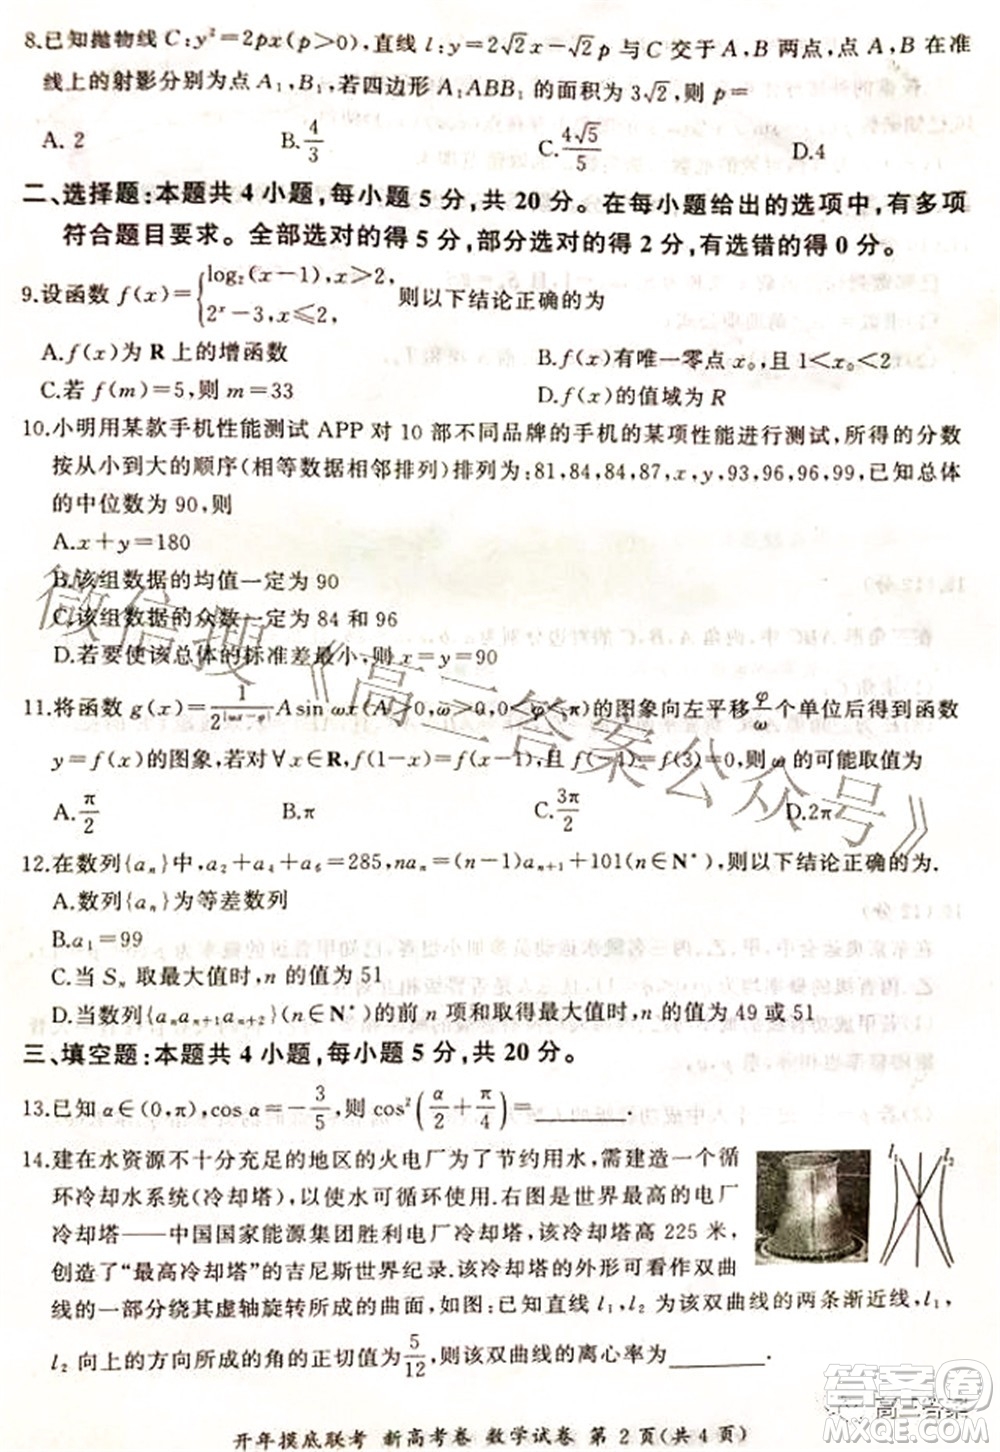 8.已知抛物线 C:y²=2px(p>0),直线 l:y=2√2x-√2p 与 C 交于 A,B 两点,点 A,B 在准
线上的射影分别为点 A₁,B₁,若四边形 A₁ABB₁ 的面积为 3√2,则 p=
A. 2 B. 4/3 C. 4√5/5 D.4
二、选择题:本题共 4 小题,每小题 5 分,共 20 分。在每小题给出的选项中,有多项
符合题目要求。全部选对的得 5 分,部分选对的得 2 分,有选错的得 0 分。
9.设函数 f(x)={log₂(x-1),x>2, 2ˣ-3,x≤2, 则以下结论正确的为
A.f(x)为 R 上的增函数 B.f(x)有唯一零点 x₀,且 1<x₀<2
C.若 f(m)=5,则 m=33 D.f(x)的值域为 R
10.小明用某款手机性能测试 APP 对 10 部不同品牌的手机的某项性能进行测试,所得的分数
按从小到大的顺序(相等数据相邻排列)排列为:81,84,84,87,x,y,93,96,96,99,已知总体
的中位数为 90,则
A.x+y=180
B.该组数据的均值一定为 90
C.该组数据的众数一定为 84 和 96
D.若要使该总体的标准差最小,则 x=y=90
11.将函数 g(x)= A sin ωx(A>0,ω>0,0<φ<π)的图象向左平移 φ/ω 个单位后得到函数
y=f(x)的图象,若对∀x∈R,f(1-x)=f(1+x),且 f(-1)=0,则 ω 的可能取值为
A. π/2 B.π C. 3π/2 D.2π
12.在数列{aₙ}中,a₂+a₄+a₆=285,naₙ=(n-1)aₙ₊₁+101(n∈N*),则以下结论正确的为.
A.数列{aₙ}为等差数列
B.a₁=99
C.当 Sₙ 取最大值时,n 的值为 51
D.当数列{aₙaₙ₊₁aₙ₊₂}(n∈N*)的前 n 项和取得最大值时,n 的值为 49 或 51
三、填空题:本题共 4 小题,每小题 5 分,共 20 分。
13.已知 α∈(0,π),cos α=-3/5,则 cos²(α/2+π/4)=________.
14.建在水资源不十分充足的地区的火电厂为了节约用水,需建造一个循
环冷却水系统(冷却塔),以使水可循环使用。右图是世界最高的电厂
冷却塔——中国国家能源集团胜利电厂冷却塔,该冷却塔高 225 米,
创造了“最高冷却塔”的吉尼斯世界纪录.该冷却塔的外形可看作双曲
线的一部分绕其虚轴旋转所成的曲面,如图:已知直线 l₁,l₂ 为该双曲线的两条渐近线,l₁,
l₂ 向上的方向所成的角的正切值为 5/12,则该双曲线的离心率为________.
l₁ l₂
开年摸底联考 新高考卷 数学试卷 第 2 页(共 4 页)
微信搜《高三答案公众号》
高三答案
答案圈
MXQE.COM